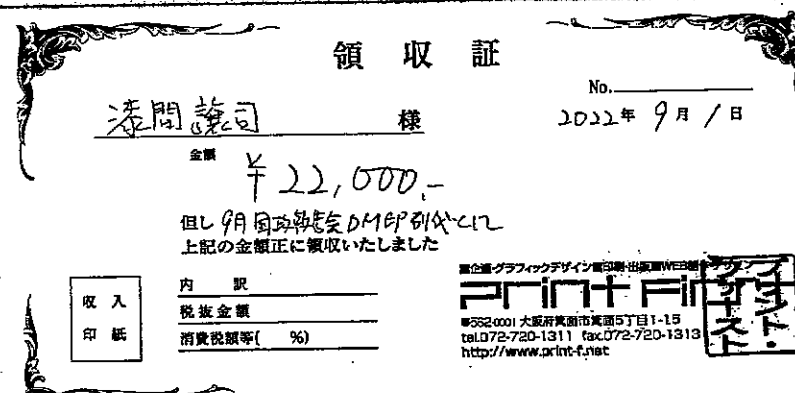 領収証
No.
漆間譲司 様
2022年 9月 1日
金額
¥22,000.-
但し 9月国政報告会DM印刷代として
上記の金額正に領収いたしました
収入
印紙
内訳
税抜金額
消費税額等( %)
■企画・グラフィックデザイン■印刷・出版■WEB
Print First
プリント・
ファースト
〒562-0001 大阪府箕面市箕面5丁目1-15
tel.072-720-1311 fax.072-720-1313
http://www.print-f.net